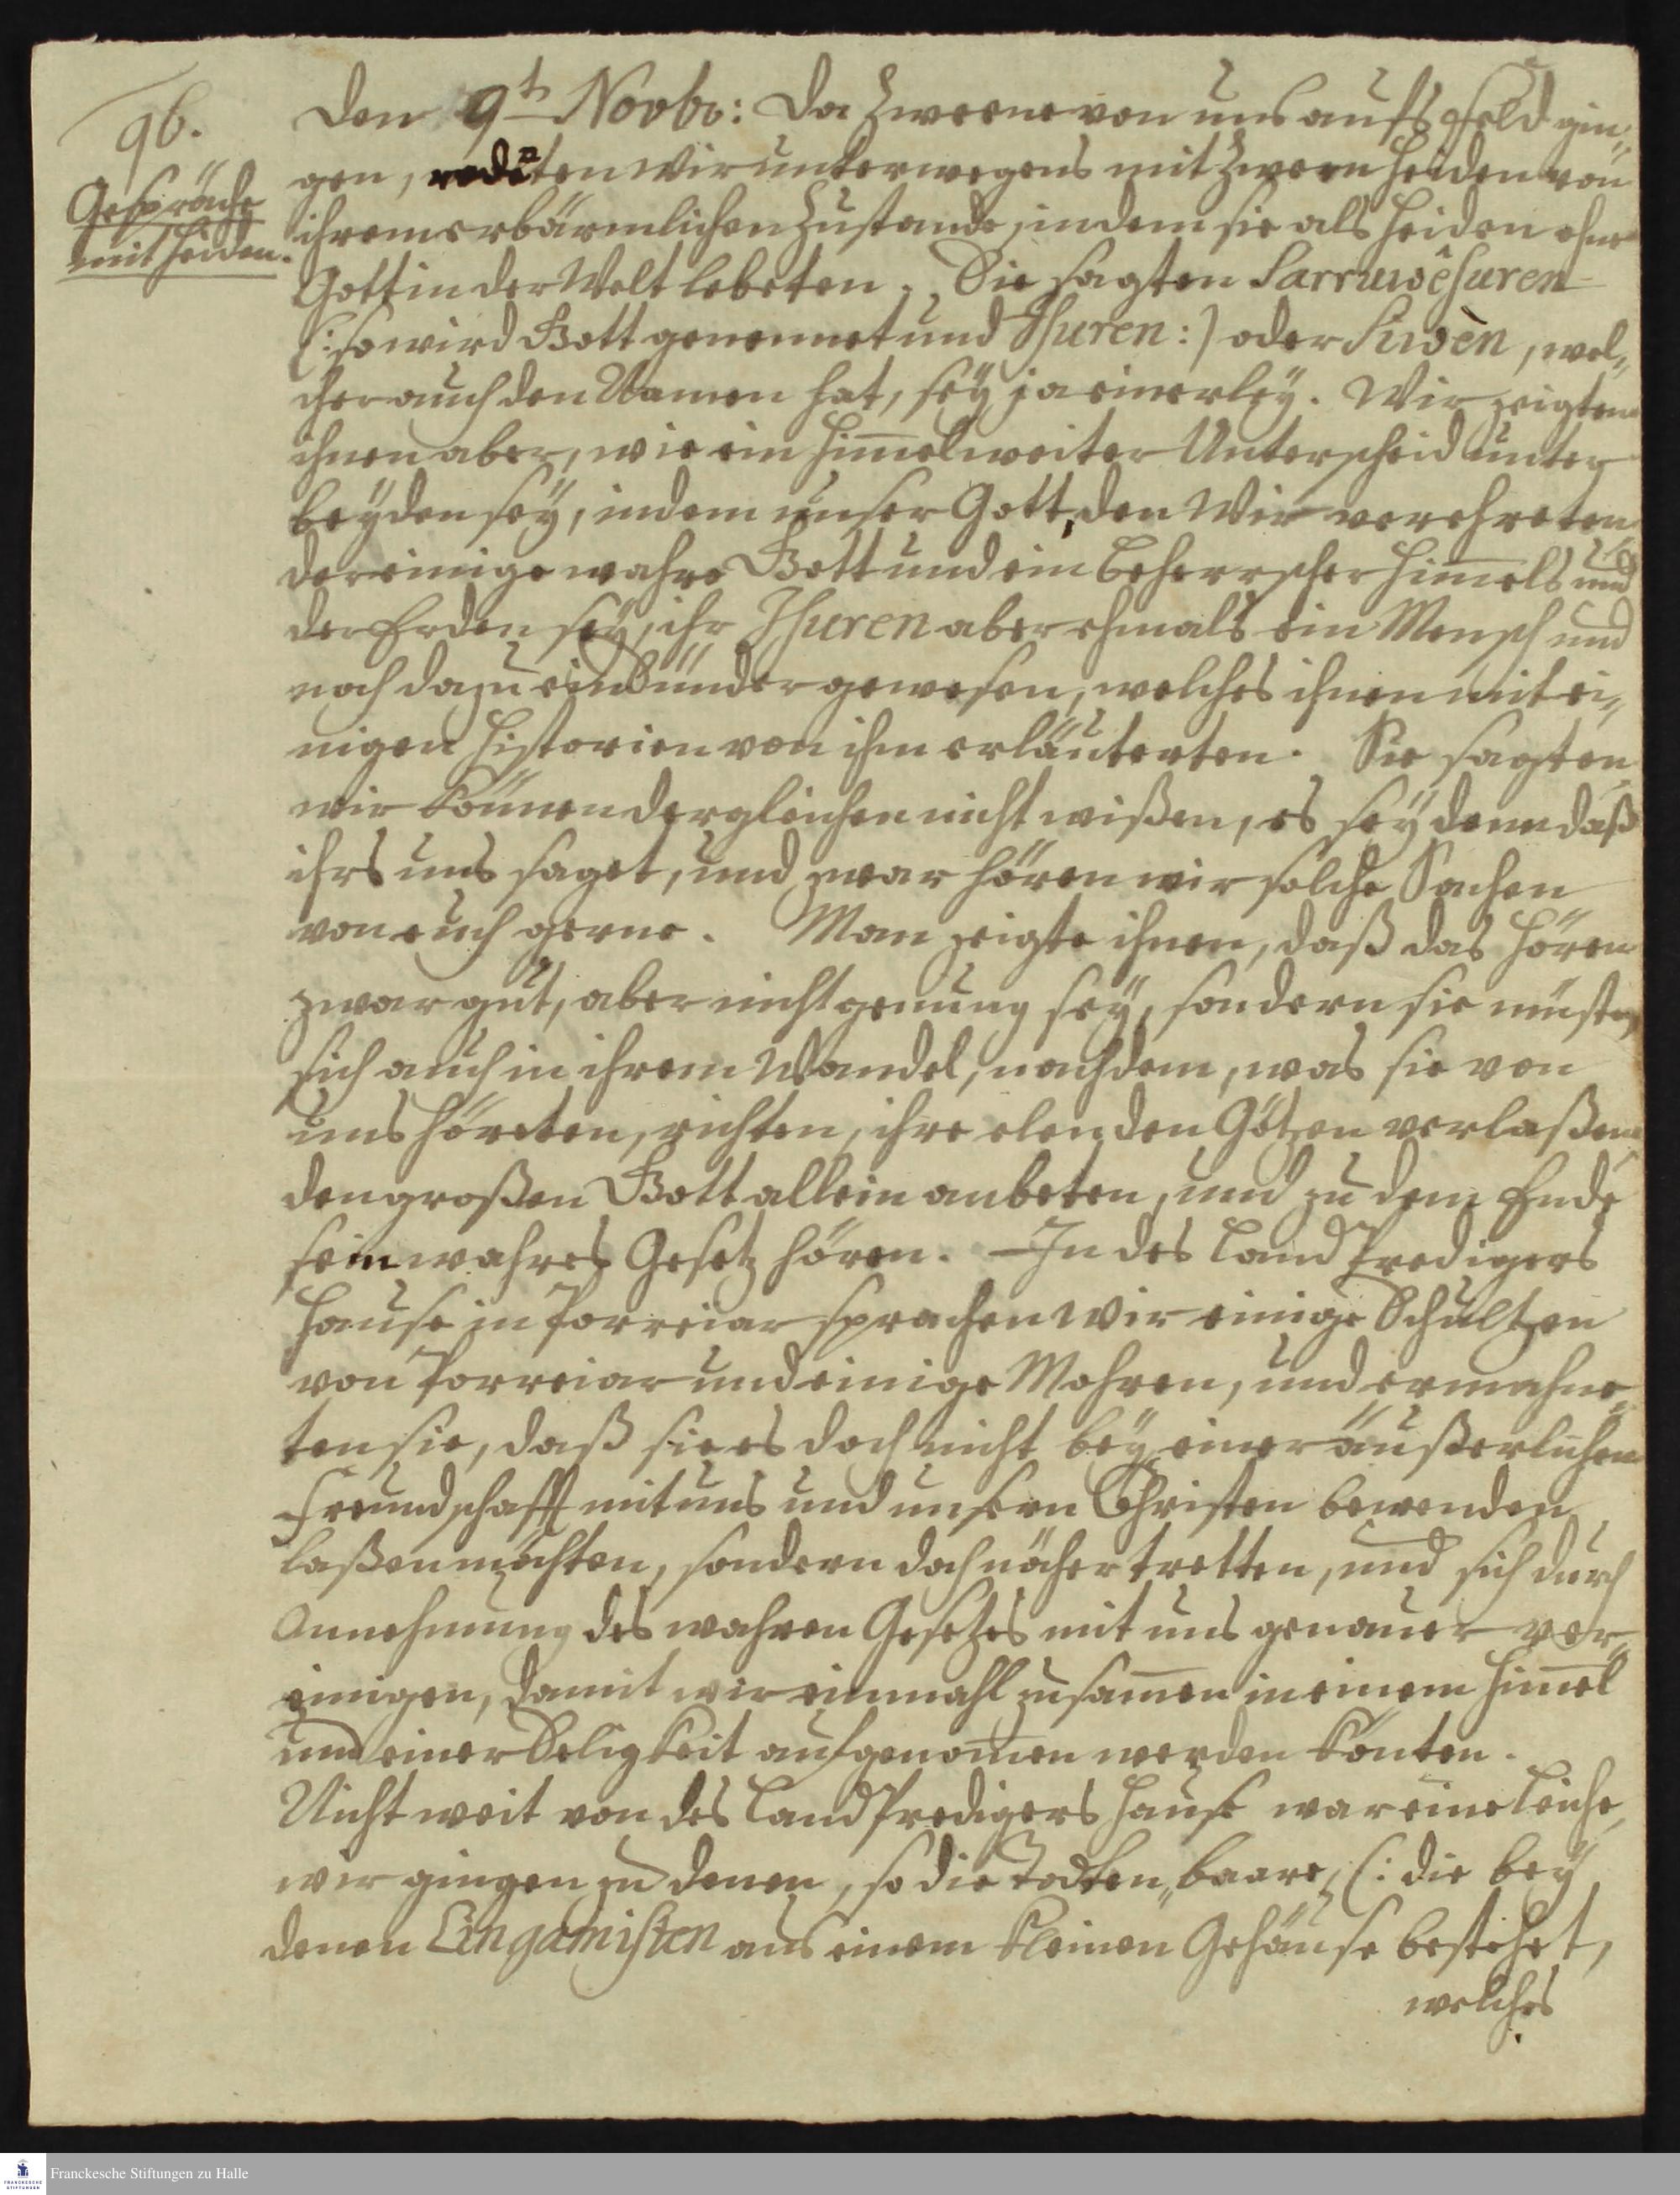 96.
Gespräche
mit Heiden.
Den 9t Novbr: Da Zweene von uns aufs Feld gin„
gen, redeten Wir unterwegens mit Zween Heiden von
ihrem erbärmlichen Zustande, indem sie als Heiden ohne
Gott in der Welt lebeten. Sie sagten Sarruwêsuren
(: so wird Gott genennet und Isuren :) oder Siwèn, wel„
cher auch den Namen hat, sey ja einerley. Wir zeigten
ihnen aber, wie ein Him̄elweiter Unterscheid unter
beyden sey, indem unser Gott, den Wir verehreten
der einige wahre Gott und ein Beherrscher Him̄els und
der Erden sey, ihr Isuren aber ehmals ein Mensch und
noch dazu ein Sünder gewesen, welches ihnen mit ei„
nigen Historien von ihm erläuterten. Sie sagten
wir können dergleichen nicht wißen, es sey denn daß
ihrs uns saget, und zwar hören wir solche Sachen
von euch gerne. Man zeigte ihnen, daß das Hören
zwar gut, aber nicht genung sey, sondern sie müsten
sich auch in ihrem Wandel, nach dem, was sie von
uns höreten, richten, ihre elenden Götzen verlaßen
den großen Gott allein anbeten, und zu dem Ende
sein wahres Gesetz hören. – In des Land Predigers
Hause in Porreiar sprachen Wir einige Schultzen
von Porreiar und einige Mohren, und ermahne„
ten sie, daß sie es doch nicht bey einer äußerlichen
Freundschafft mit uns und unsern Christen bewenden
laßen möchten, sondern doch näher tretten, und sich durch
Annehmung des wahren Gesetzes mit uns genauer ver„
einigen, damit wir einmahl zusam̄en in einem Him̄el
und einer Seligkeit aufgenom̄en werden könten.
Nicht weit von des Land Predigers Hause war eine Leiche,
wir gingen zu denen, so die Todten„baare, (: die bey
denen Lingamisten aus einem kleinen Gehäuse bestehet,
welches
Franckesche Stiftungen zu Halle